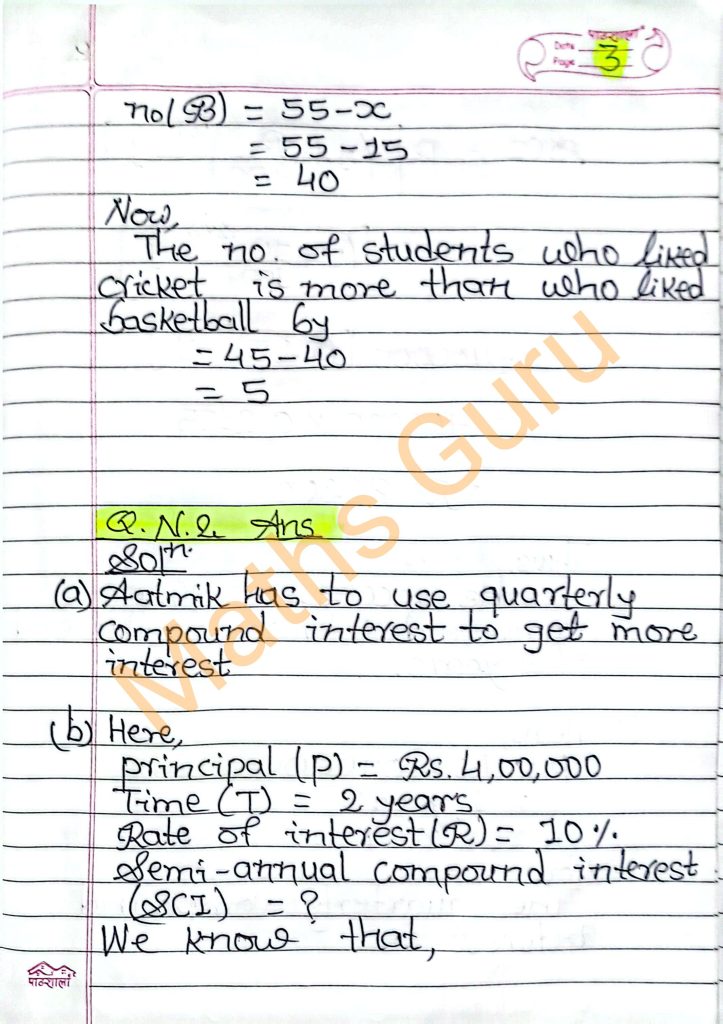 पाठशाला
Date
Page 3
no(B) = 55-x
= 55-15
= 40
Now,
The no. of students who liked
cricket is more than who liked
basketball by
= 45-40
= 5
Maths Guru
Q.N.2 Ans
Solⁿ.
(a) Aatmik has to use quarterly
compound interest to get more
interest
(b) Here,
principal (P) = Rs. 4,00,000
Time (T) = 2 years
Rate of interest (R) = 10%
Semi-annual compound interest
(SCI) = ?
We know that,
पाठशाला